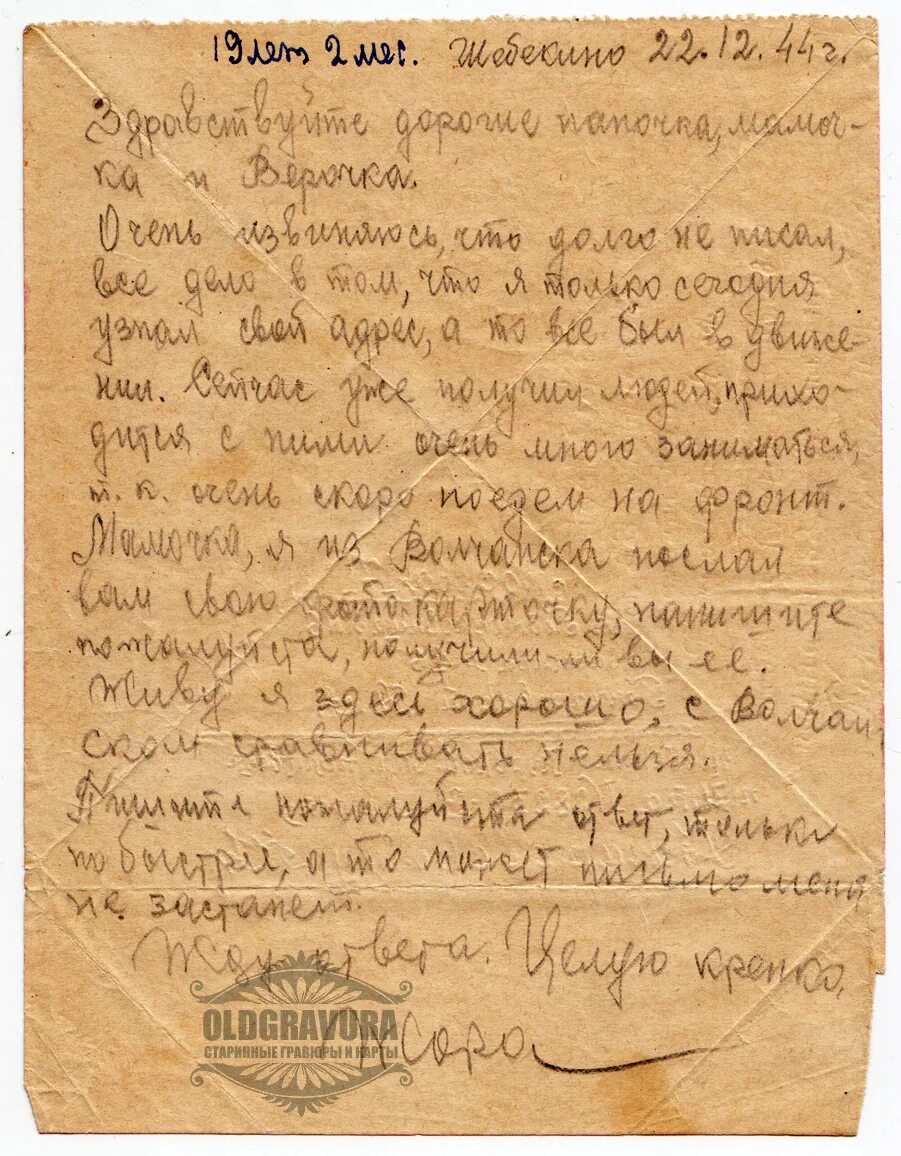 19 лет 2 мес. Шебекино 22.12.44г.
Здравствуйте дорогие папочка, мамоч-
ка и Верочка.
Очень извиняюсь, что долго не писал,
все дело в том, что я только сегодня
узнал свой адрес, а то все был в движе-
нии. Сейчас уже получил людей, прихо-
дится с ними очень много заниматься,
т. к. очень скоро поедем на фронт.
Мамочка, я из Волчанска послал
вам свою фото-карточку, напишите
пожалуйста, получили-ли вы ее.
Живу я здесь хорошо, с Волчан-
ском сравнивать нельзя.
Пишите пожалуйста ответ, только
по быстрее, а то может письмо меня
не застанет.
Жду ответа. Целую крепко,
Жора
OLDGRAVURA
СТАРИННЫЕ ГРАВЮРЫ И КАРТЫ